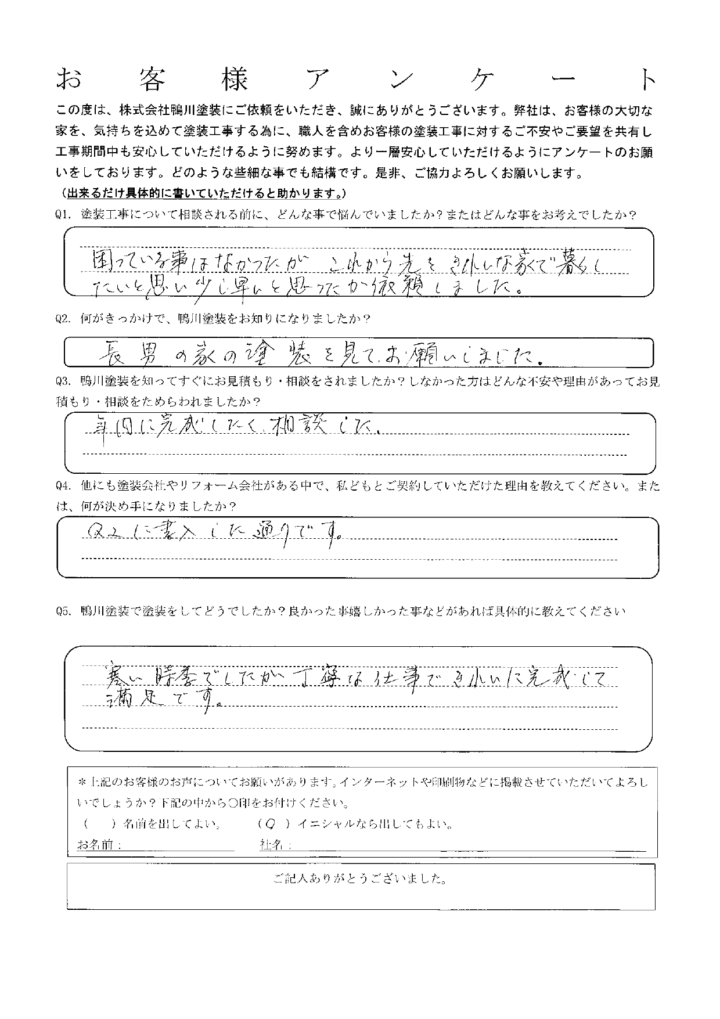 お客様アンケート
この度は、株式会社鴨川塗装にご依頼をいただき、誠にありがとうございます。弊社は、お客様の大切な
家を、気持ちを込めて塗装工事する為に、職人を含めお客様の塗装工事に対するご不安やご要望を共有し
工事期間中も安心していただけるように努めます。より一層安心していただけるようにアンケートのお願
いをしております。どのような些細な事でも結構です。是非、ご協力よろしくお願いします。
（出来るだけ具体的に書いていただけると助かります。）
Q1. 塗装工事について相談される前に、どんな事で悩んでいましたか？またはどんな事をお考えでしたか？
困っている事はなかったが これから先をきれいな家で暮らし
たいと思い少し早いと思ったが依頼しました。
Q2. 何がきっかけで、鴨川塗装をお知りになりましたか？
長男の家の塗装を見てお願いしました。
Q3. 鴨川塗装を知ってすぐにお見積もり・相談をされましたか？しなかった方はどんな不安や理由があってお見
積もり・相談をためらわれましたか？
年内に完成したく相談した。
Q4. 他にも塗装会社やリフォーム会社がある中で、私どもとご契約していただけた理由を教えてください。また
は、何が決め手になりましたか？
Q2に書入した通りです。
Q5. 鴨川塗装で塗装をしてどうでしたか？良かった事嬉しかった事などがあれば具体的に教えてください
寒い時季でしたが丁寧な仕事できれいに完成して
満足です。
＊上記のお客様のお声についてお願いがあります。インターネットや印刷物などに掲載させていただいてよろし
いでしょうか？下記の中から○印をお付けください。
（　　）名前を出してよい。　　（○）イニシャルなら出してもよい。
お名前：　　　　　　　　社名：
ご記入ありがとうございました。